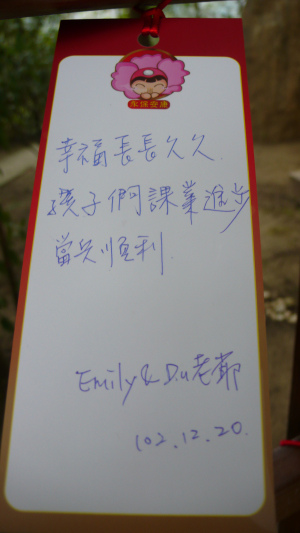 永保安康
幸福長長久久
孩子們課業進步
當兵順利
Emily & Du老爺
102.12.20.